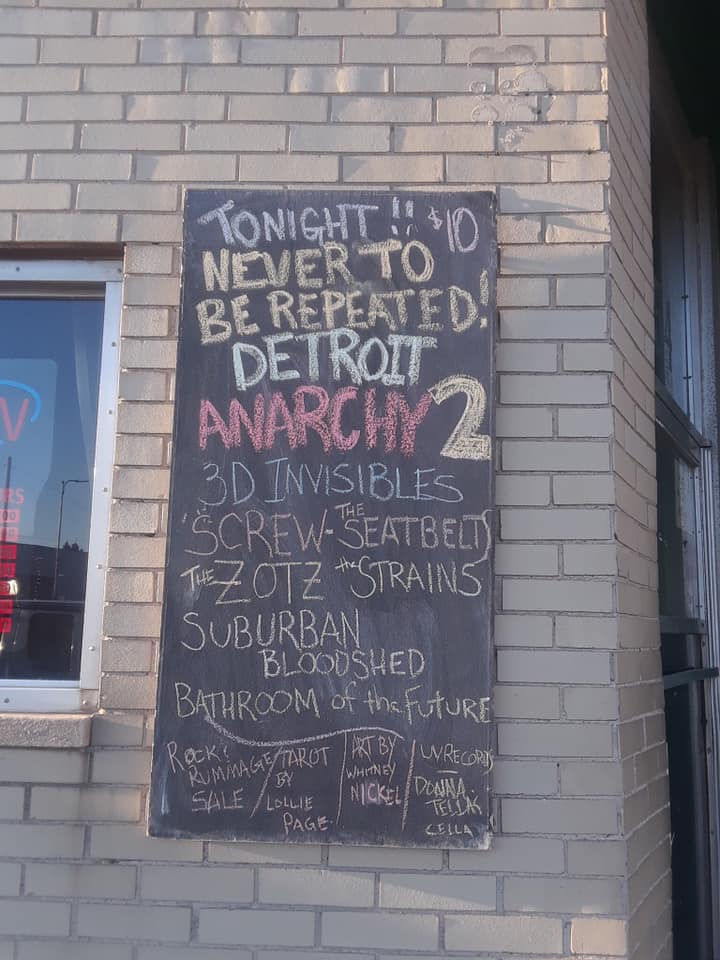 TONIGHT!! $10
NEVER TO
BE REPEATED!
DETROIT
ANARCHY 2
3D INVISIBLES
"SCREW-THE SEATBELTS
THE ZOTZ the STRAINS
SUBURBAN
BLOODSHED
BATHROOM of the FUTURE
ROCK!
RUMMAGE
SALE
TAROT
BY
LOLLIE
PAGE
ART BY
WHITNEY
NICKEL
UVRECORDS
DONNA
CELLA
V
RS